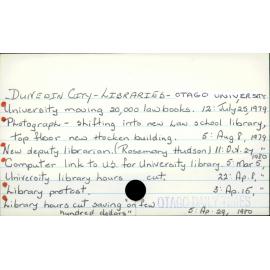 DUNEDIN CITY - LIBRARIES - OTAGO UNIVERSITY
University moving 20,000 law books. 12: July 25, 1979
Photograph - shifting into new Law school library,
top floor new Hocken building. 5: Aug 8, 1979
New deputy librarian. (Rosemary Hudson) 11: Oct. 27, "
Computer link to U.S. for University library. 5: Mar 5, 1980
University library hours cut. 22: Ap. 8, "
Library protest. 3: Ap. 15, "
Library hours cut saving "on few
hundred dollars" 5: Ap. 29, 1980
OTAGO DAILY TIMES